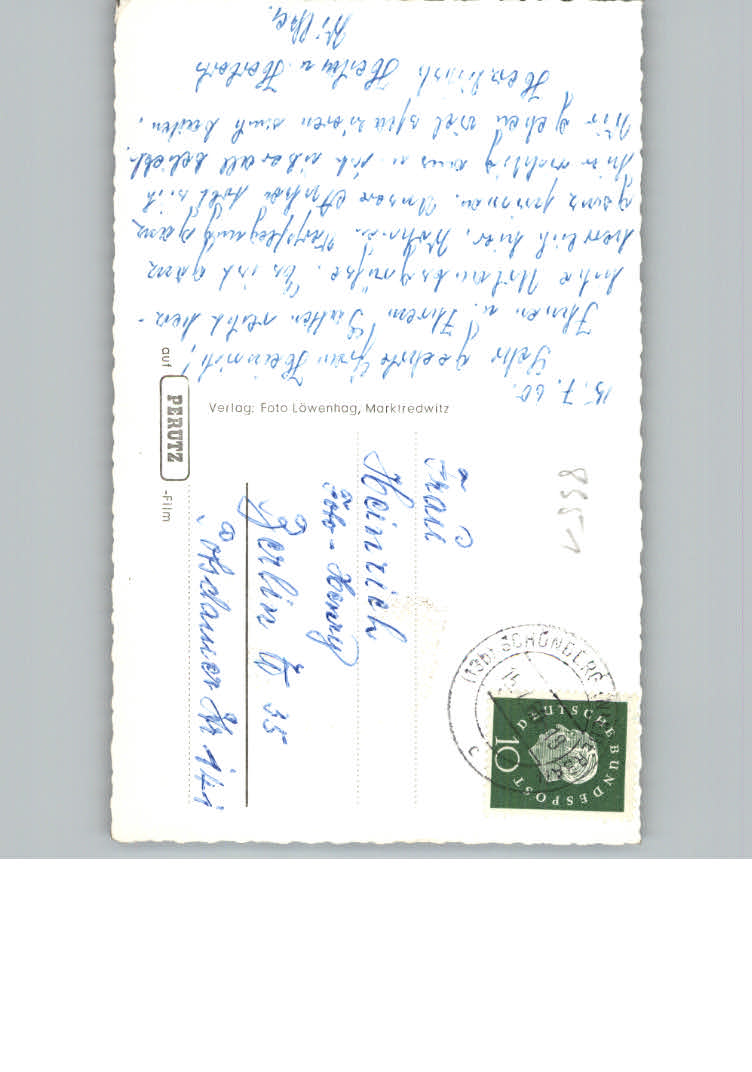 15.7.60.
Sehr geehrte Frau Heinrich!
Ihnen u. Ihrem Gatten recht herz-
liche Urlaubsgrüße. Es ist ganz
herrlich hier, Wohn- u. Verpflegung ganz
ganz prima. Unsere
hier richtig aus u. ist überall beliebt.
Wir gehen viel spazieren und baden.
Herzlichst Herta u. Herbert
Verlag: Foto Löwenhag, Marktredwitz
auf PERUTZ -Film
Frau
Heinrich
Foto-Henry
Berlin W 35
Potsdamer Str 141
8551
(13b) SCHÖNBERG
15.
DEUTSCHE BUNDESPOST
10